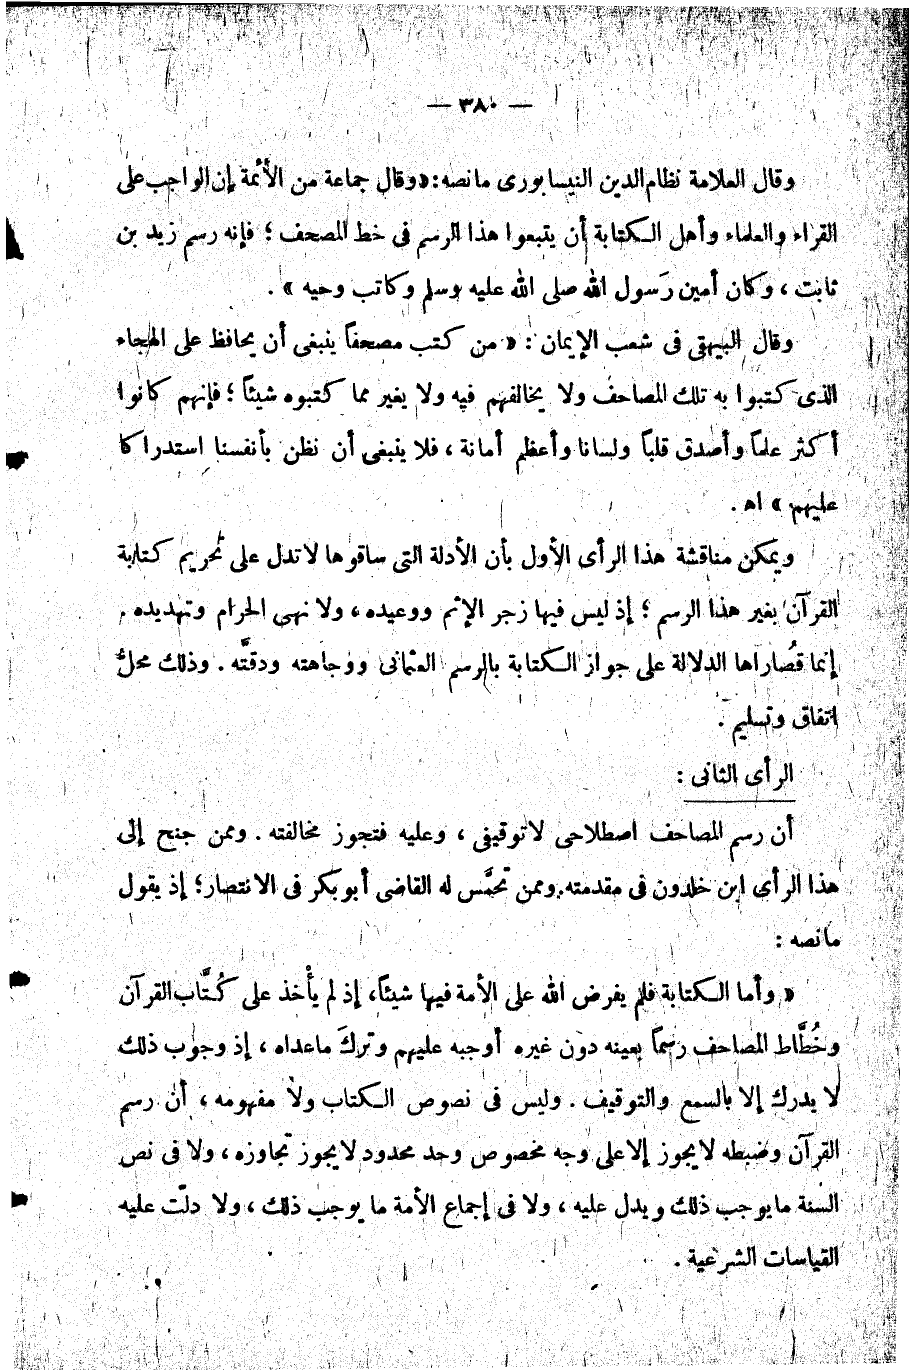 — ٣٨٠ —
وقال العلامة نظام الدين النيسابورى ما نصه: «وقال جماعة من الأئمة إن الواجب على
القراء والعلماء وأهل الكتابة أن يتبعوا هذا الرسم فى خط المصحف ؛ فإنه رسم زيد بن
ثابت ، وكان أمين رَسول الله صلى الله عليه وسلم وكاتب وحيه » .
وقال البيهقى فى شعب الإيمان : « من كتب مصحفاً ينبغى أن يحافظ على الهجاء
الذى كتبوا به تلك المصاحف ولا يخالفهم فيه ولا يغير مما كتبوه شيئاً ؛ فإنهم كانوا
أكثر علماً وأصدق قلباً ولسانا وأعظم أمانة ، فلا ينبغى أن نظن بأنفسنا استدراكا
عليهم » اهـ .
ويمكن مناقشة هذا الرأى الأول بأن الأدلة التى ساقوها لا تدل على تحريم كتابة
القرآن بغير هذا الرسم ؛ إذ ليس فيها زجر الإثم ووعيده ، ولا نهى الحرام وتهديده .
إنما قصُاراها الدلالة على جواز الكتابة بالرسم العثمانى ووجاهته ودقتَّه . وذلك محلّ
اتفاق وتسليم .
الرأى الثانى :
أن رسم المصاحف اصطلاحى لا توقيفى ، وعليه فتجوز مخالفته . وممن جنح إلى
هذا الرأى ابن خلدون فى مقدمته. وممن تحمَّس له القاضى أبو بكر فى الانتصار؛ إذ يقول
ما نصه :
« وأما الكتابة فلم يفرض الله على الأمة فيها شيئاً، إذ لم يأْخذ على كُتَّاب القرآن
وخُطَّاط المصاحف رسماً بعينه دون غيره أوجبه عليهم وتركَ ما عداه ، إذ وجوب ذلك
لا يدرك إلا بالسمع والتوقيف . وليس فى نصوص الكتاب ولا مفهومه ، أن رسم
القرآن وضبطه لا يجوز إلا على وجه مخصوص وحد محدود لا يجوز تجاوزه ، ولا فى نص
السنة ما يوجب ذلك ويدل عليه ، ولا فى إجماع الأمة ما يوجب ذلك ، ولا دلّت عليه
القياسات الشرعية .